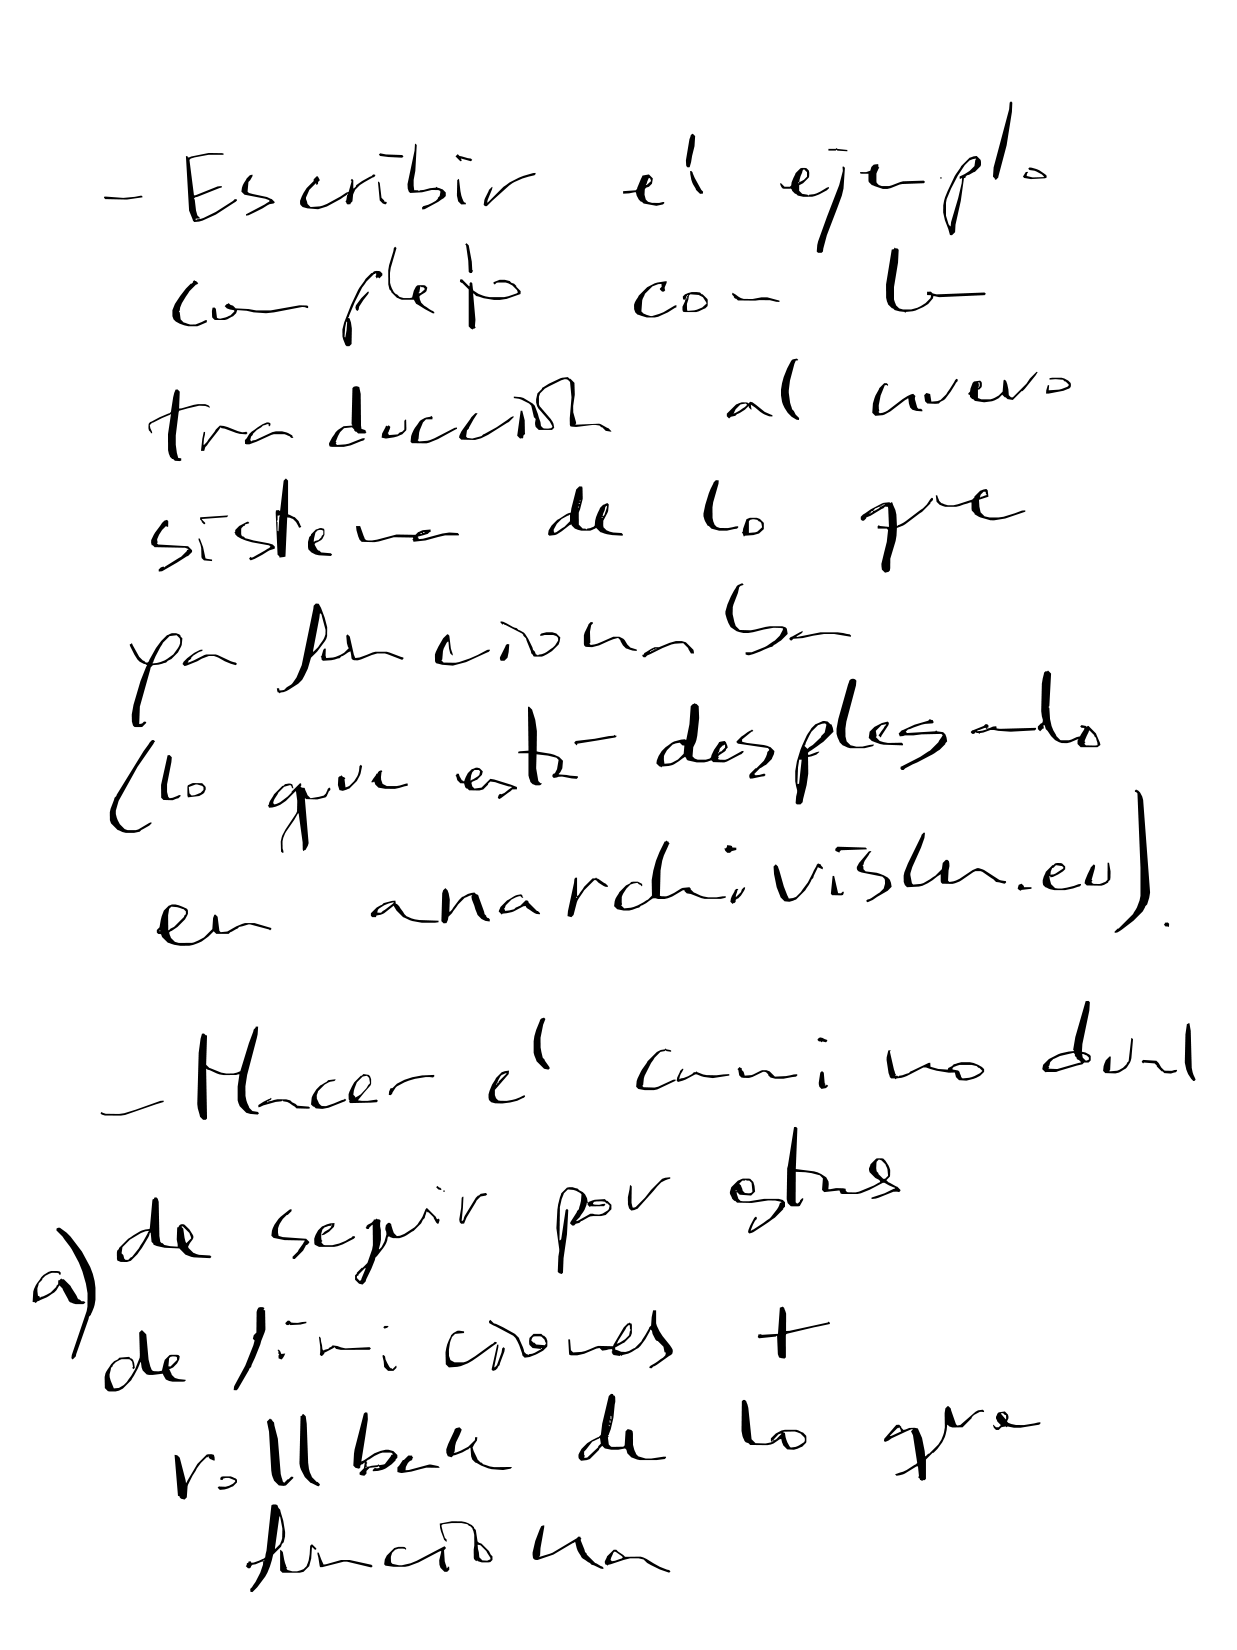 - Escribir el ejemplo
completo con la
traducción al nuevo
sistema de lo que
ya funcionaba
(lo que está desplegado
en anarchivista.eu).
- Hacer el camino dual
de seguir por estas
a)
definiciones +
rollback de lo que
funciona